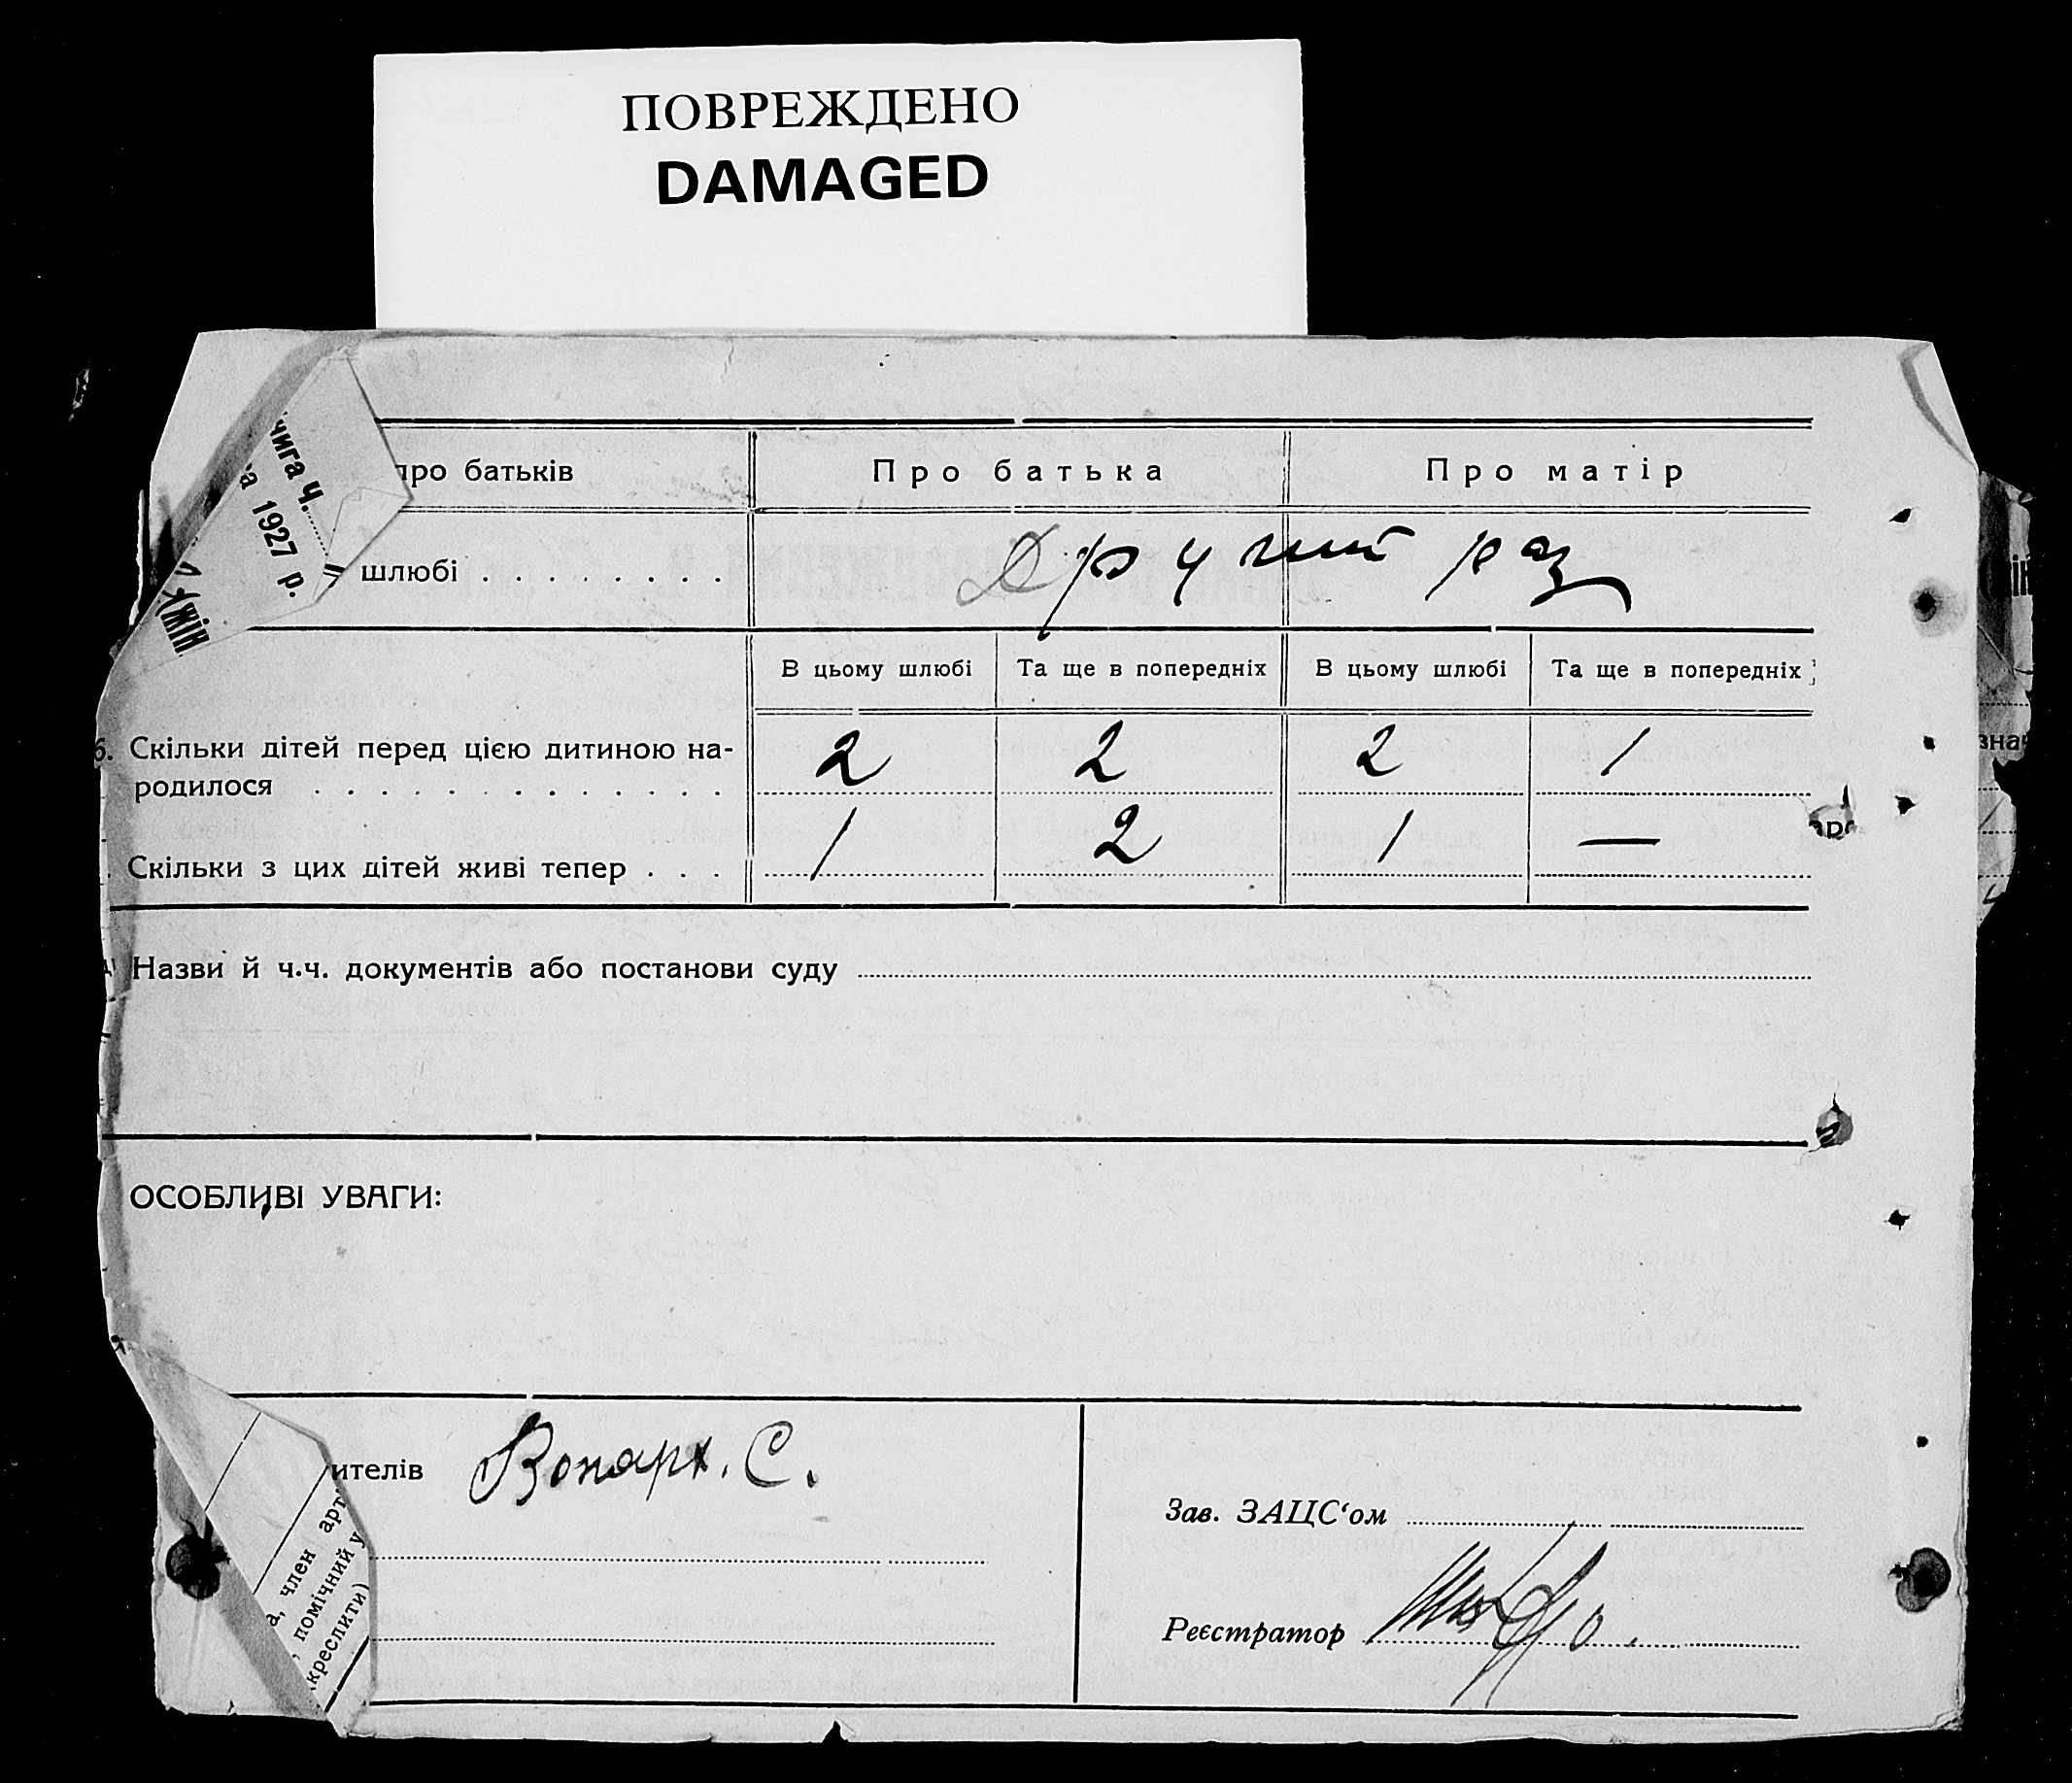 ПОВРЕЖДЕНО
DAMAGED
нига Ч.
а 1927 р.
про батьків
Про батька
Про матір
шлюбі
Другий раз
В цьому шлюбі
Та ще в попередніх
В цьому шлюбі
Та ще в попередніх
6. Скільки дітей перед цією дитиною на-
родилося
2 2 2 1
Скільки з цих дітей живі тепер
1 2 1 —
Назви й ч.ч. документів або постанови суду
ОСОБЛИВІ УВАГИ:
ителів
С.
Зав. ЗАЦС‘ом
Реєстратор
а, член арт
, помічний у
креслити)